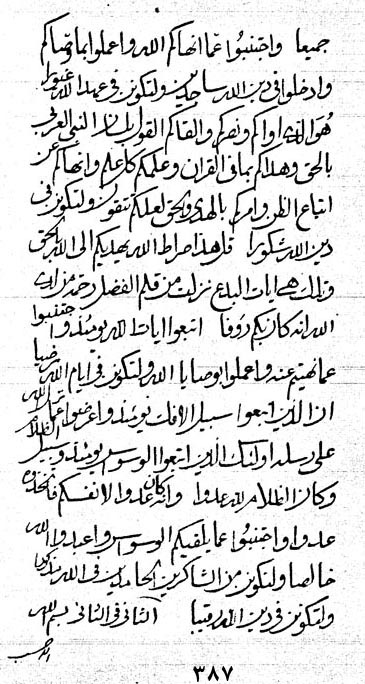 جميعا واجتنبوا عما انهاكم الله واعملوا بما وصاكم
وادخلوا في دين الله ساجدين ولتكونن في عهد الله
هو الذي اواكم ونصركم والقاكم القول بلسان النبي العربي
بالحق وهداكم بما في القران وعلمكم كل علم وانهاكم عن
اتباع الظن وامركم بالهدى والحق لعلكم تتقون ولتكونن في
دين الله شكورا قل هذا صراط الله يهديكم الى الله بالحق
وتلك ايات البدع نزلت من قلم الفضل رحمة من لدى
الله انه كان بكم رؤفا اتبعوا ايات الله يومئذ واجتنبوا
عما نهيتم عنه واعملوا بوصايا الله ولتكونن في ايام الله
اذ الذين اتبعوا سبيل الافك يومئذ واعرضوا عما
على رسله اولئك الذين اتبعوا الوسواس يومئذ وسبيل الظلام
وكان الظلام لله عدوا وانه كان عدوا لانفسكم فاتخذوه
عدوا واجتنبوا عما يلقيكم الوسواس واعبدوا الله
خالصا ولتكونن من الشاكرين الحامدين في الله
ولتكونن في دين الله رقيبا الثاني في الثاني بسم الله
٣٨٧